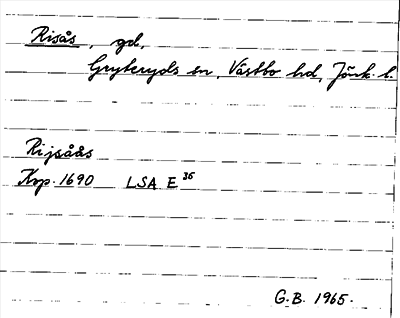 Risås, gd,
Gryteryds sn, Västbo hd, Jönk. l.
Rijsåås
Krp. 1690 LSA E 36
G.B. 1965.